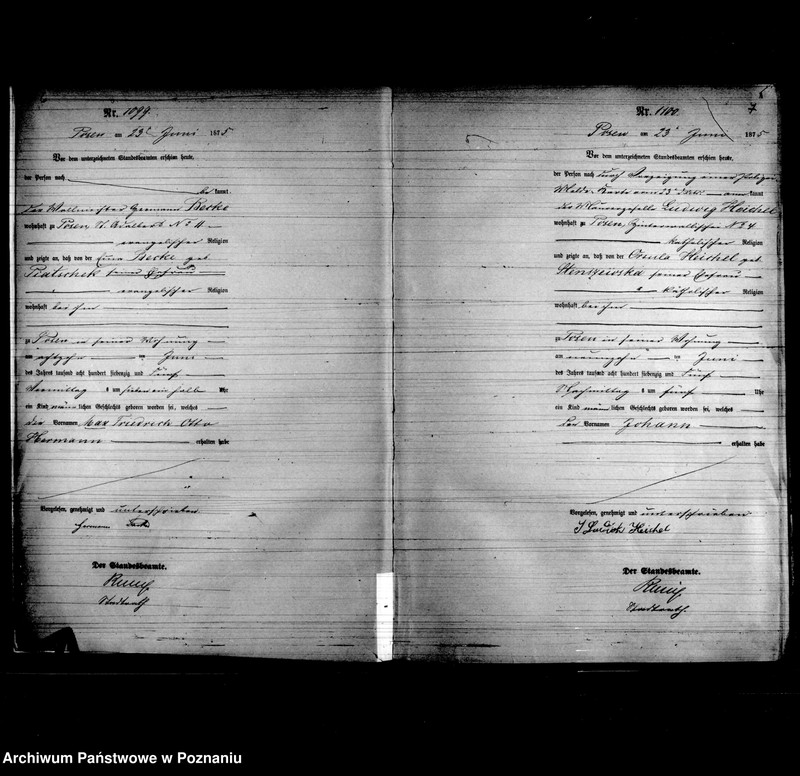 Nr. 1099.
Posen am 23ᵗ Juni 1875
Vor dem unterzeichneten Standesbeamten erschien heute,
der Person nach
be kannt
Hermann Becke
wohnhaft zu Posen, St. Adalbert No 11
evangelischer Religion
und zeigte an, daß von der Becke geb.
seine Ehefrau
evangelischer Religion
wohnhaft bei ihm
zu Posen in seiner Wohnung
am achtzehn ten Juni
des Jahres tausend acht hundert siebenzig und fünf
Vormittag s um sieben ein halb Uhr
ein Kind männ lichen Geschlechts geboren worden sei, welches
der Vornamen Max Friedrich Otto
Hermann erhalten habe
Vorgelesen, genehmigt und unterschrieben
Hermann
Der Standesbeamte.
Stadtrath
7
Nr. 1100.
Posen am 23ᵗ Juni 1875
Vor dem unterzeichneten Standesbeamten erschien heute,
der Person nach durch
kannt
der Maurergeselle Ludwig Heichel
wohnhaft zu Posen, No 4
katholischer Religion
und zeigte an, daß von der Ursula Heichel geb.
seiner Ehefrau
katholischer Religion
wohnhaft bei ihm
zu Posen in seiner Wohnung
am neunzehn ten Juni
des Jahres tausend acht hundert siebenzig und fünf
Nachmittag s um fünf Uhr
ein Kind männ lichen Geschlechts geboren worden sei, welches
den Vornamen Johann
erhalten habe
Vorgelesen, genehmigt und unterschrieben
Der Standesbeamte.
Stadtrath.
Archiwum Państwowe w Poznaniu